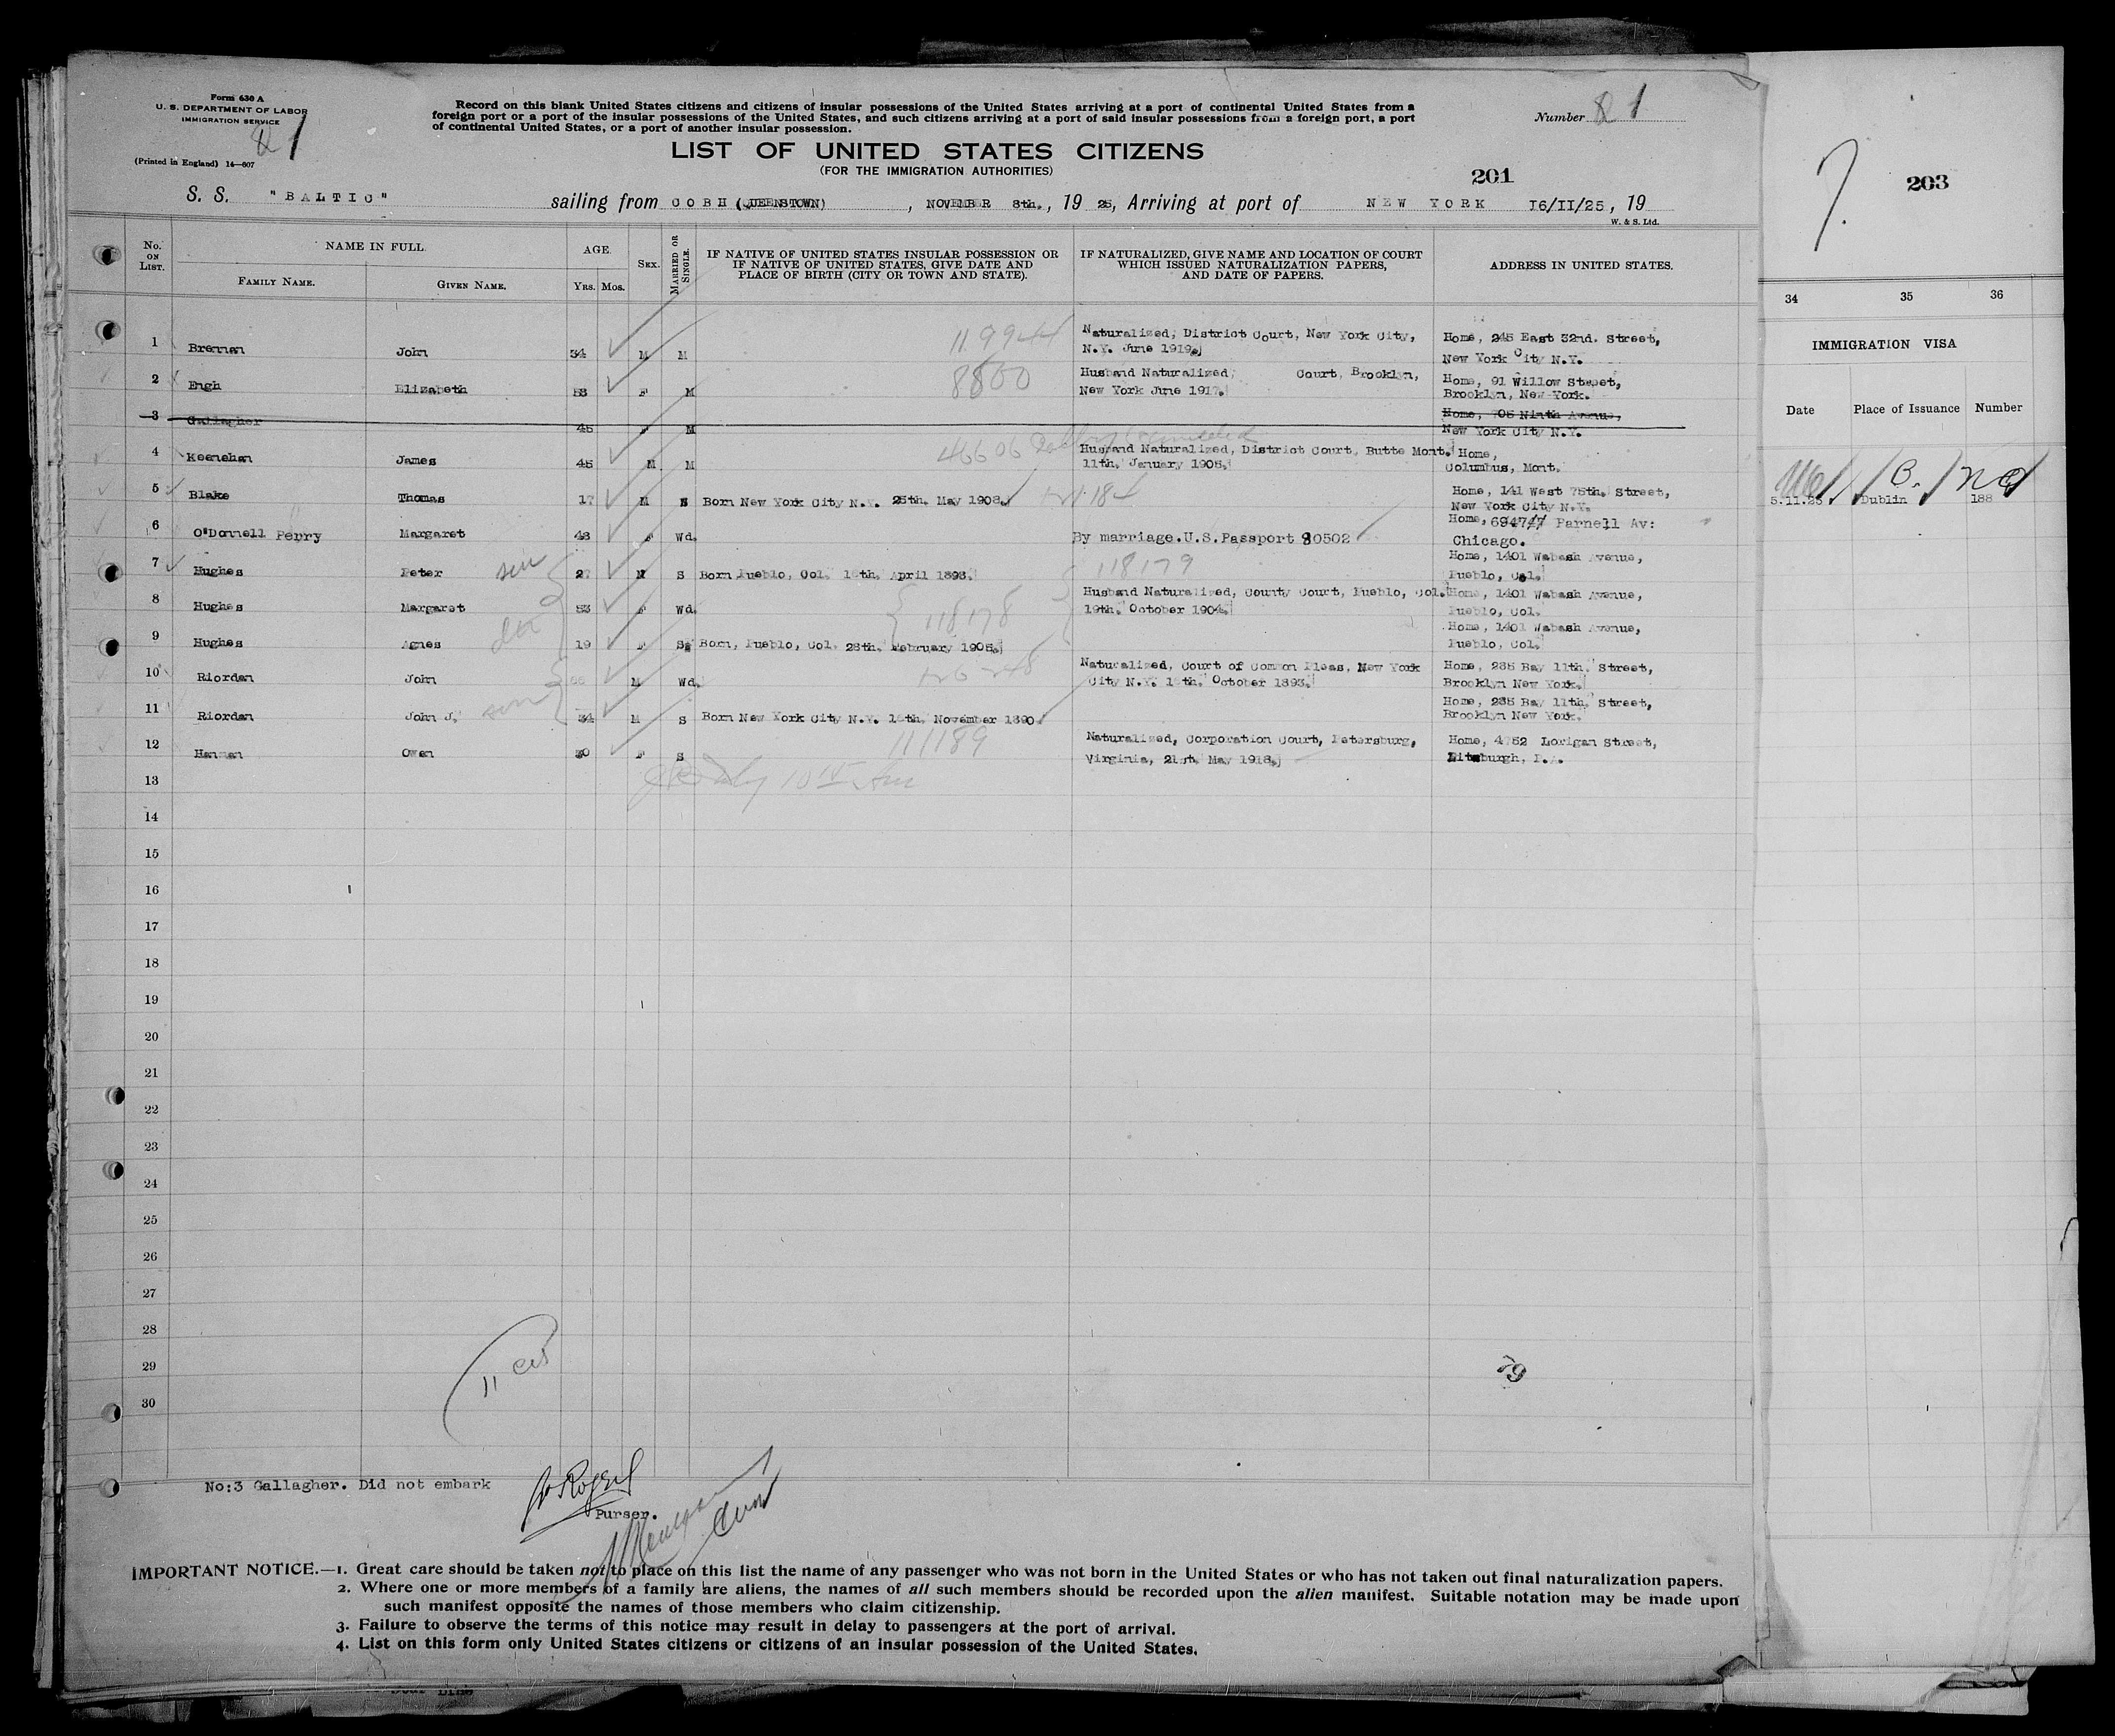 Form 630 A
U. S. DEPARTMENT OF LABOR
IMMIGRATION SERVICE
(Printed in England) 14—607
Record on this blank United States citizens and citizens of insular possessions of the United States arriving at a port of continental United States from a
foreign port or a port of the insular possessions of the United States, and such citizens arriving at a port of said insular possessions from a foreign port, a port
of continental United States, or a port of another insular possession.
Number 1
LIST OF UNITED STATES CITIZENS
(FOR THE IMMIGRATION AUTHORITIES)
201
S. S. "BALTIC" sailing from COBH (QUEENSTOWN), NOVEMBER 8th., 19 25, Arriving at port of NEW YORK 16/11/25, 19
W. & S. Ltd.
No. ON LIST.
NAME IN FULL
FAMILY NAME. GIVEN NAME.
AGE.
YRS. MOS.
SEX.
MARRIED OR SINGLE.
IF NATIVE OF UNITED STATES INSULAR POSSESSION OR
IF NATIVE OF UNITED STATES, GIVE DATE AND
PLACE OF BIRTH (CITY OR TOWN AND STATE).
IF NATURALIZED, GIVE NAME AND LOCATION OF COURT
WHICH ISSUED NATURALIZATION PAPERS,
AND DATE OF PAPERS.
ADDRESS IN UNITED STATES.
1 Brennan John 34 M M 119944 Naturalized, District Court, New York City,
N.Y. June 1919. Home, 245 East 32nd. Street,
New York City N.Y.
2 Engh Elizabeth 53 F M 8500 Husband Naturalized, Court, Brooklyn,
New York June 1917. Home, 91 Willow Street,
Brooklyn, New York.
3 Gallagher 45 F M Home, 705 Ninth Avenue,
New York City N.Y.
4 Keenehan James 45 M M 46606 Husband Naturalized, District Court, Butte Mont.
11th. January 1905. Home,
Columbus, Mont.
5 Blake Thomas 17 M S Born New York City N.Y. 25th. May 1908. 121184 Home, 141 West 75th. Street,
New York City N.Y.
6 O'Donnell Perry Margaret 48 F Wd. By marriage.U.S.Passport 80502 Home, 6947 Parnell Av:
Chicago.
7 Hughes Peter 27 M S Born Pueblo, Col. April 1898. 118179 Home, 1401 Wabash Avenue,
Pueblo, Col.
8 Hughes Margaret 53 F Wd. 118178 Husband Naturalized, County Court, Pueblo, Col.
19th. October 1904. Home, 1401 Wabash Avenue,
Pueblo, Col.
9 Hughes Agnes 19 F S. Born, Pueblo, Col. 28th. February 1906. Home, 1401 Wabash Avenue,
Pueblo, Col.
10 Riordan John M Wd. 126248 Naturalized, Court of Common Pleas, New York
City N.Y. October 1893. Home, 235 Bay 11th. Street,
Brooklyn New York.
11 Riordan John J. son 34 M S Born New York City N.Y. November 1890. Home, 235 Bay 11th. Street,
Brooklyn New York.
12 Hannan Owen 30 F S 111189 Naturalized, Corporation Court, Petersburg,
Virginia, 21st. May 1918. Home, 4752 Lorigan Street,
Pittsburgh, P.A.
13
14
15
16
17
18
19
20
21
22
23
24
25
26
27
28
29
30
No:3 Gallagher. Did not embark
Purser.
IMPORTANT NOTICE.—1. Great care should be taken not to place on this list the name of any passenger who was not born in the United States or who has not taken out final naturalization papers.
2. Where one or more members of a family are aliens, the names of all such members should be recorded upon the alien manifest. Suitable notation may be made upon
such manifest opposite the names of those members who claim citizenship.
3. Failure to observe the terms of this notice may result in delay to passengers at the port of arrival.
4. List on this form only United States citizens or citizens of an insular possession of the United States.
203
34 35 36
IMMIGRATION VISA
Date Place of Issuance Number
5.11.25 Dublin 188